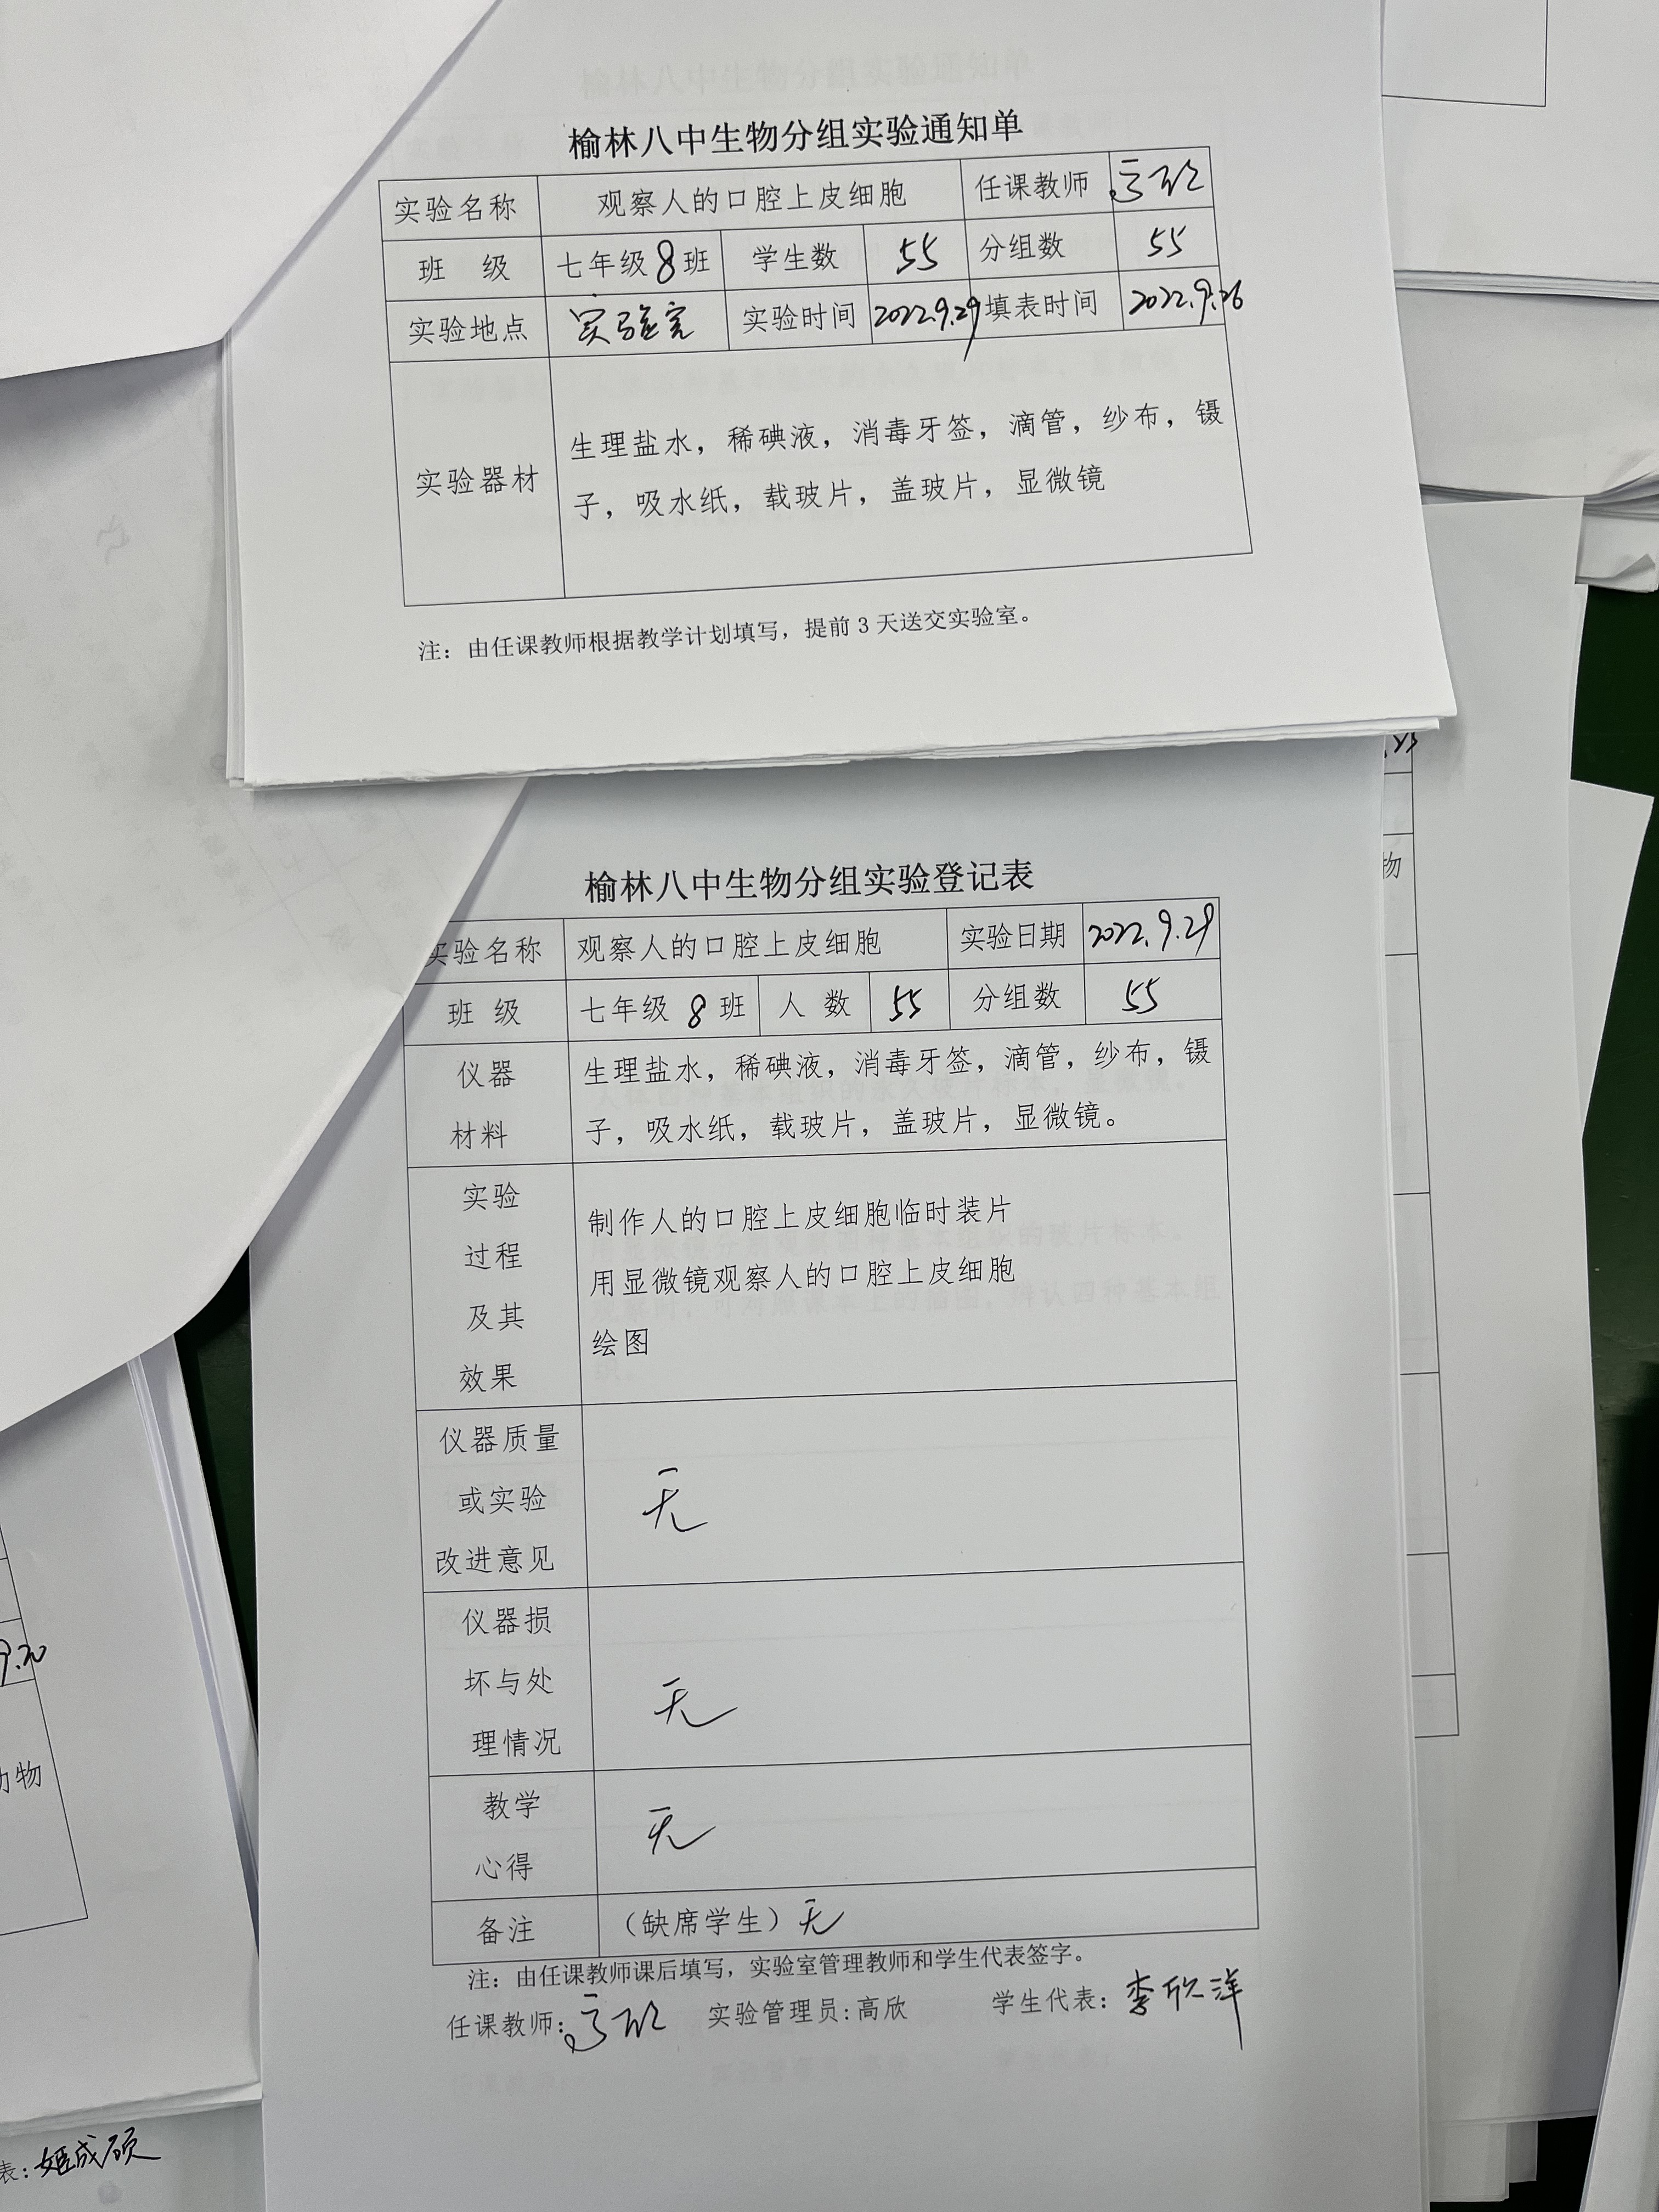 榆林八中生物分组实验通知单
实验名称 观察人的口腔上皮细胞 任课教师 高欣
班 级 七年级 8 班 学生数 55 分组数 55
实验地点 实验室 实验时间 2022.9.29 填表时间 2022.9.26
实验器材 生理盐水，稀碘液，消毒牙签，滴管，纱布，镊
子，吸水纸，载玻片，盖玻片，显微镜
注：由任课教师根据教学计划填写，提前 3 天送交实验室。
榆林八中生物分组实验登记表
实验名称 观察人的口腔上皮细胞 实验日期 2022.9.29
班 级 七年级 8 班 人 数 55 分组数 55
仪器
材料
生理盐水，稀碘液，消毒牙签，滴管，纱布，镊
子，吸水纸，载玻片，盖玻片，显微镜。
实验
过程
及其
效果
制作人的口腔上皮细胞临时装片
用显微镜观察人的口腔上皮细胞
绘图
仪器质量
或实验
改进意见
无
仪器损
坏与处
理情况
无
教学
心得
无
备注 （缺席学生）无
注：由任课教师课后填写，实验室管理教师和学生代表签字。
任课教师：高欣 实验管理员：高欣 学生代表：李欣洋
物
9.20
动物
表：姬成硕